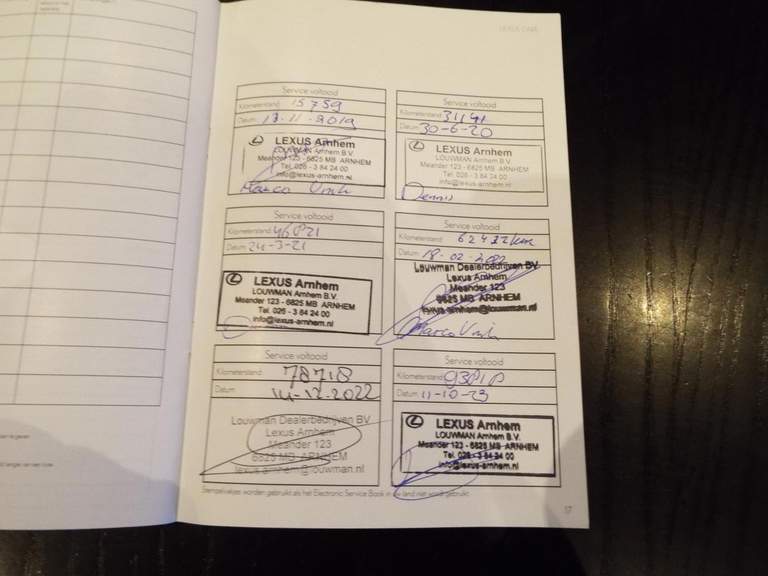 LEXUS CARE
Service voltooid
Kilometerstand 15759
Datum 13-11-2019
LEXUS Arnhem
LOUWMAN Arnhem B.V.
Meander 123 - 6825 MB ARNHEM
Tel. 026 - 3 84 24 00
info@lexus-arnhem.nl
Marco Vink
Service voltooid
Kilometerstand 31141
Datum 30-6-20
LEXUS Arnhem
LOUWMAN Arnhem B.V.
Meander 123 - 6825 MB ARNHEM
Tel. 026 - 3 84 24 00
info@lexus-arnhem.nl
Dennis
Service voltooid
Kilometerstand 46821
Datum 24-3-21
LEXUS Arnhem
LOUWMAN Arnhem B.V.
Meander 123 - 6825 MB ARNHEM
Tel. 026 - 3 84 24 00
info@lexus-arnhem.nl
Service voltooid
Kilometerstand km
Datum 18-02-2022
Louwman Dealerbedrijven BV
Lexus Arnhem
Meander 123
6825 MB ARNHEM
lexus-arnhem@louwman.nl
Marco Vink
Service voltooid
Kilometerstand 78718
Datum 14-12-2022
Louwman Dealerbedrijven BV
Lexus Arnhem
Meander 123
6825 MB ARNHEM
lexus-arnhem@louwman.nl
Service voltooid
Kilometerstand
Datum 11-10-23
LEXUS Arnhem
LOUWMAN Arnhem B.V.
Meander 123 - 6825 MB ARNHEM
Tel. 026 - 3 84 24 00
info@lexus-arnhem.nl
Stempelvakjes worden gebruikt als het Electronic Service Book in uw land niet wordt gebruikt.
17